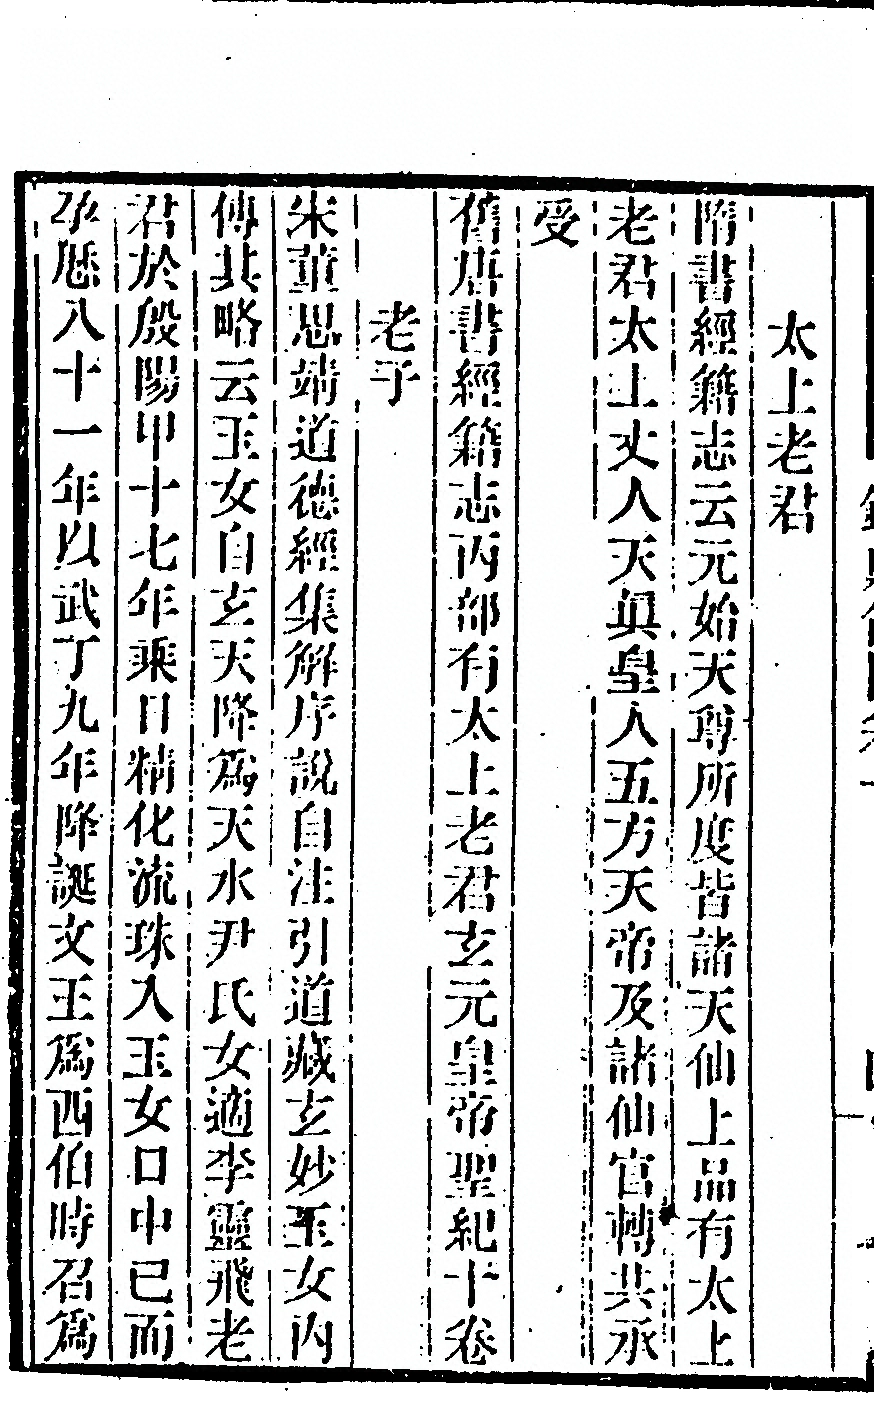 太上老君
隋書經籍志云元始天尊所度皆諸天仙上品有太上
老君太上丈人天真皇人五方天帝及諸仙官轉共承
受
舊唐書經籍志丙部有太上老君玄元皇帝聖紀十卷
老子
朱董思靖道德經集解序說自注引道藏玄妙玉女內
傳其略云玉女自玄天降爲天水尹氏女適李靈飛老
君於殷陽甲十七年乘日精化流珠入玉女口中已而
孕歷八十一年以武丁九年降誕文王爲西伯時召爲